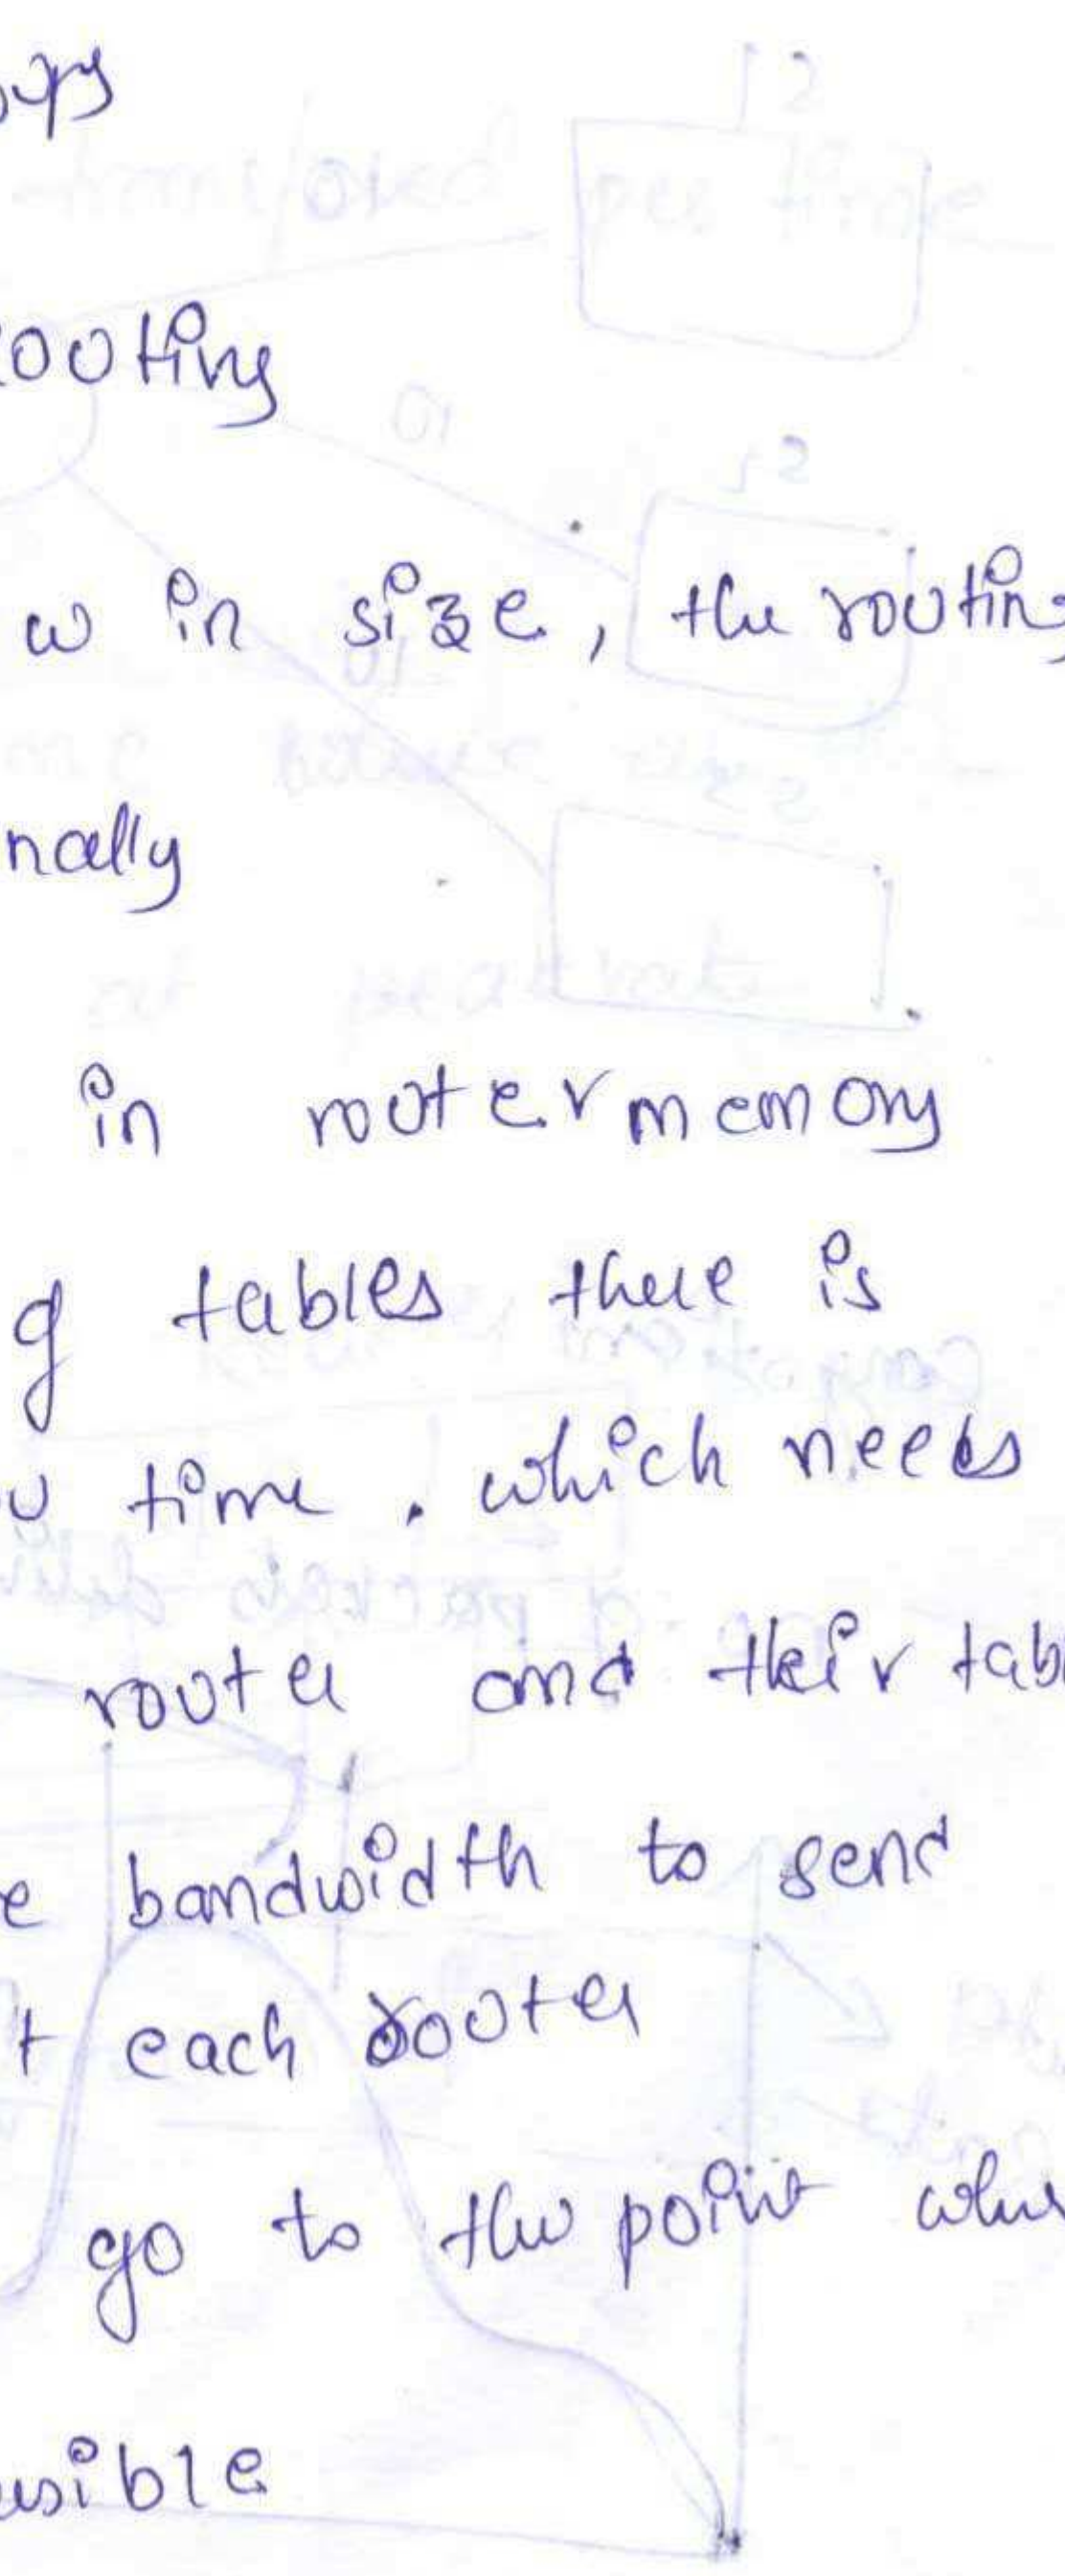 ooting
w in size, the routing
nally
in router memory
g tables there is
time. which needs
router and their tabl
e bandwidth to send
t each router
go to the point whe
sible